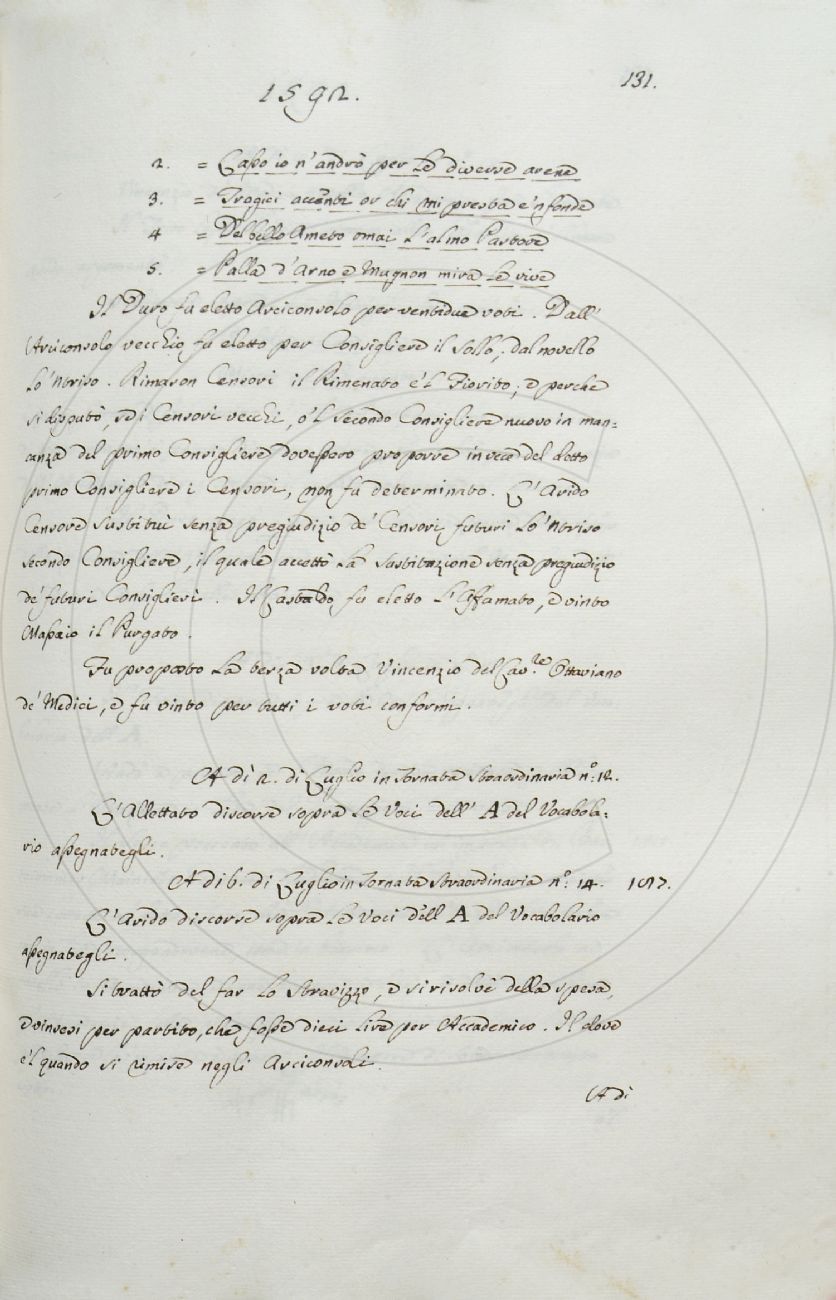 1592.
131.
2. = Caſo io n'andrò per le diverse arene
3. = Tragici accenti or chi mi presta e'nfonde
4 = Del bello Ameto omai l'almo Pastore
5. = Palla d'Arno e Mugnon mira le rive
Il Duro fu eletto Arciconsolo per ventidue voti. Dall'
Arciconsolo vecchio fu eletto per Consigliere il Sollo, dal novello
lo 'Ntriso. Rimason Censori il Rimenato e 'l Fiorito; e perchè
si disputò, se i Censori vecchi, o 'l secondo Consigliere nuovo in man=
canza del primo Consigliere doveſsero proporre in vece del detto
primo Consigliere i Censori, non fu determinato. L'Arido
Censore sustituì senza pregiudizio de' Censori futuri lo 'Ntriso
secondo Consigliere, il quale accettò la sustituzione senza pregiudizio
de' futuri Consiglieri. Il Castaldo fu eletto l'Affamato, e vinto
Maſsaio il Purgato.
Fu proposto la terza volta Vincenzio del Cav.re Ottaviano
de' Medici, e fu vinto per tutti i voti conformi.
A dì 2. di Luglio in Tornata Straordinaria n.o 12.
L'Allottato discorse sopra le Voci dell' A del Vocabola=
rio aſsegnategli.
A di 6. di Luglio in Tornata straordinaria n.o 14. 157.
L'Arido discorse sopra le Voci dell A del Vocabolario
aſsegnategli.
Si trattò del far lo Stravizzo, e si risolvè della spesa,
e vinsesi per partito, che foſse dieci lire per Accademico. Il dove
e 'l quando si rimise negli Arciconsoli.
A dì